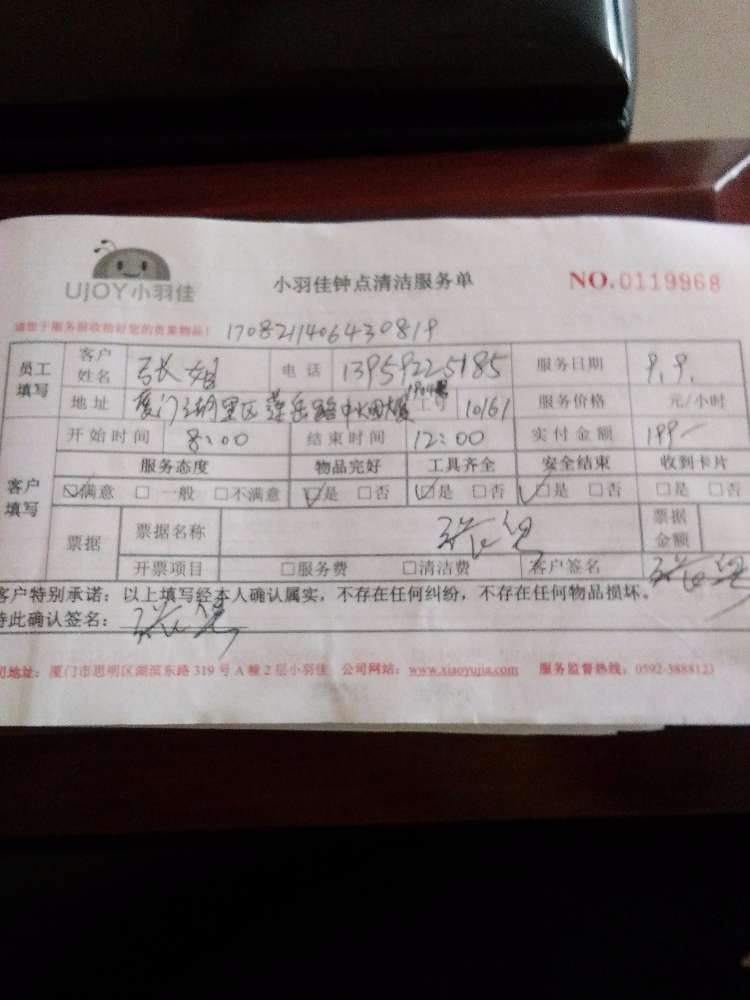 UJOY小羽佳
小羽佳钟点清洁服务单
NO.0119968
请您于服务前收拾好您的贵重物品! 1708211406430819
员工填写 客户姓名 张姐 电话 13959225185 服务日期 9.9.
地址 厦门 里区莲岳路 大厦 工号 10161 服务价格 元/小时
开始时间 8:00 结束时间 12:00 实付金额 199-
客户填写 服务态度 物品完好 工具齐全 安全结束 收到卡片
☑满意 □一般 □不满意 ☑是 □否 ☑是 □否 ☑是 □否 □是 □否
票据 票据名称 票据金额
开票项目 □服务费 □清洁费 客户签名
客户特别承诺:以上填写经本人确认属实,不存在任何纠纷,不存在任何物品损坏。
特此确认签名:
司地址:厦门市思明区湖滨东路 319 号 A 幢 2 层小羽佳 公司网站:www.xiaoyujia.com 服务监督热线:0592-5888123